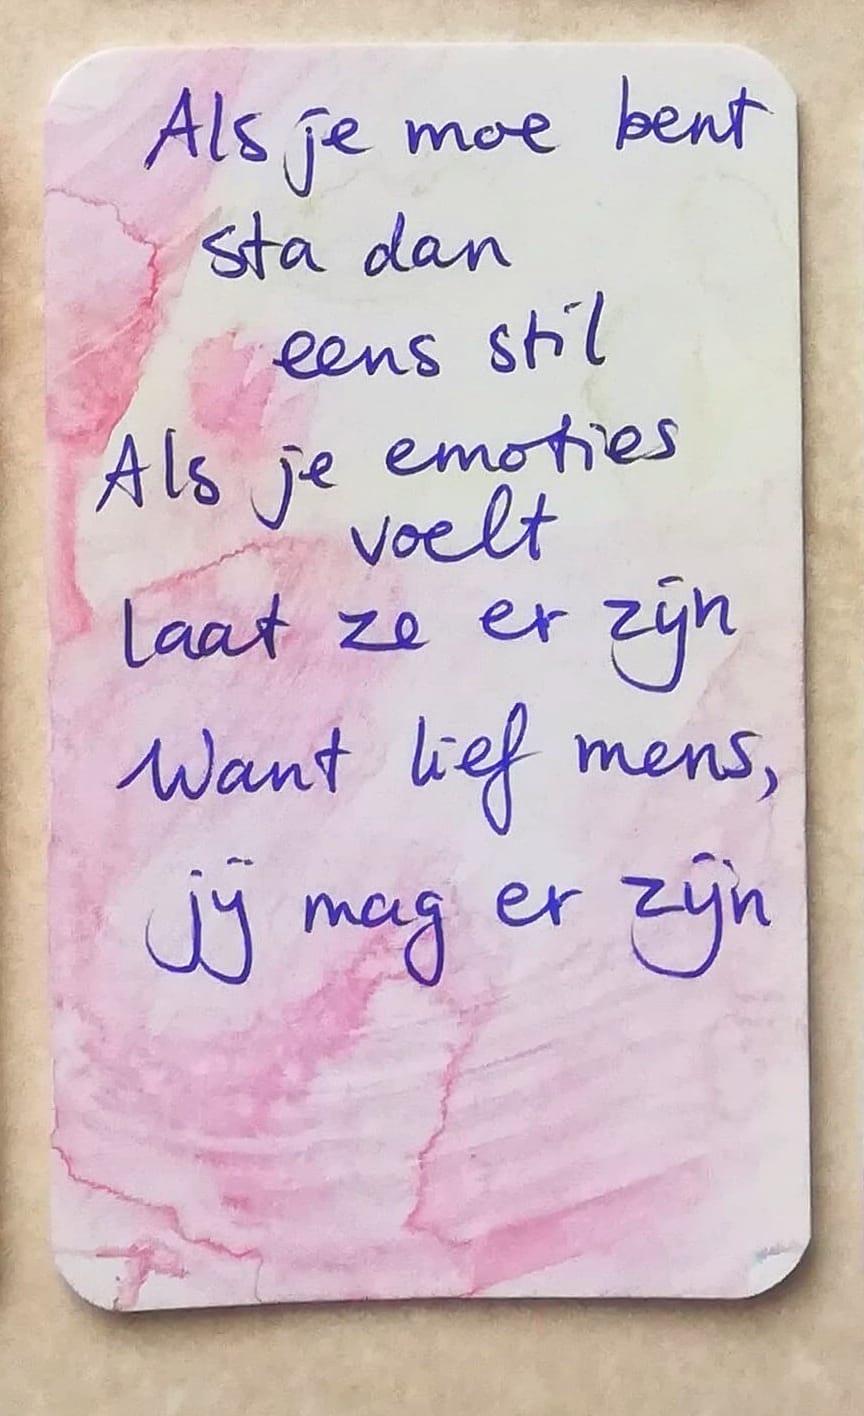 Als je moe bent
sta dan
eens stil
Als je emoties
voelt
laat ze er zijn
Want lief mens,
jij mag er zijn